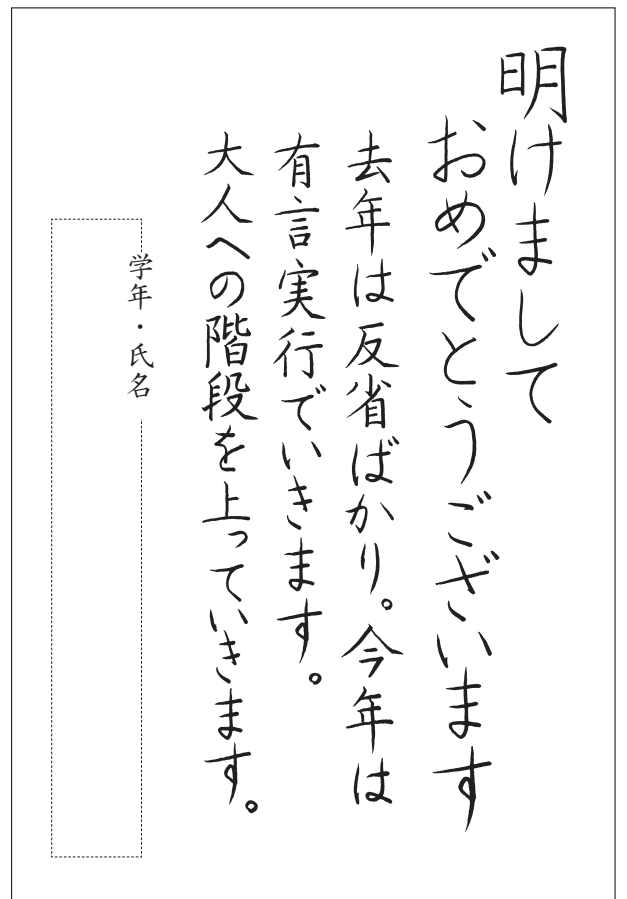 明けまして
おめでとうございます
去年は反省ばかり。今年は
有言実行でいきます。
大人への階段を上っていきます。
学年・氏名